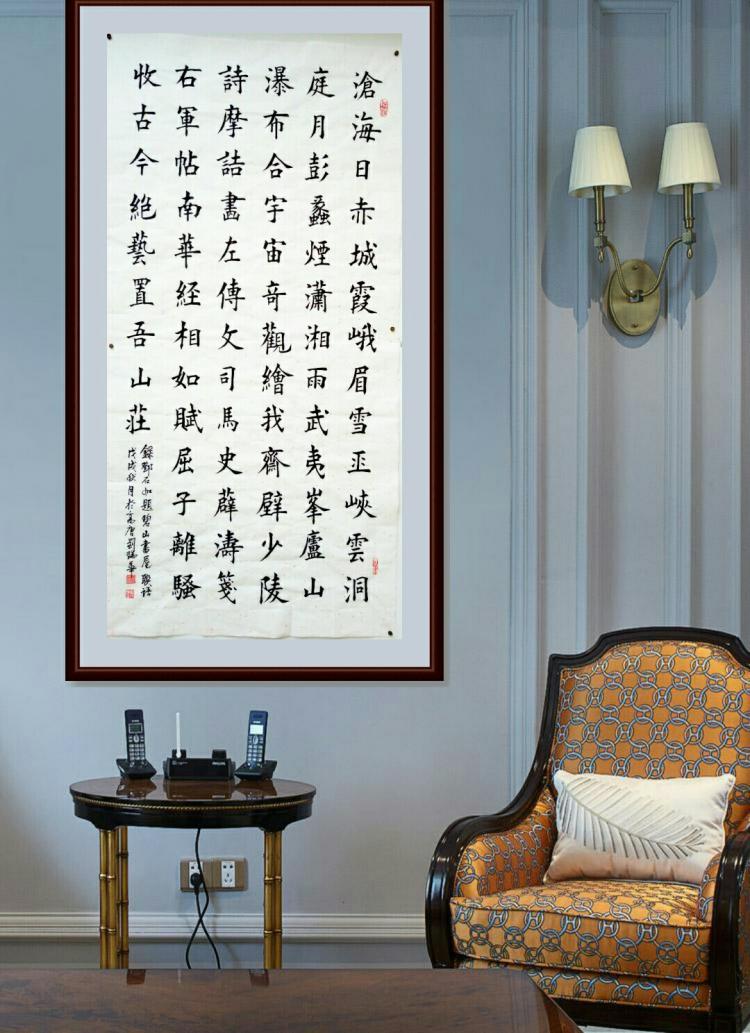 滄海日赤城霞峨眉雪巫峽雲洞
庭月彭蠡煙瀟湘雨武夷峯廬山
瀑布合宇宙奇觀繪我齋壁少陵
詩摩詰畫左傳文司馬史薜濤箋
右軍帖南華経相如賦屈子離騷
收古今絕藝置吾山莊
錄鄧石如題碧山書屋聯語
戊戌秋月於高唐劉